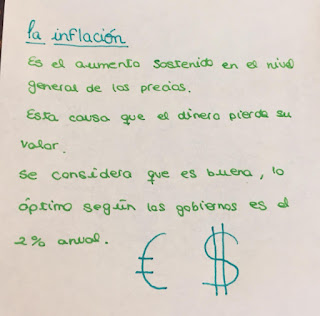 la inflación
Es el aumento sostenido en el nivel
general de los precios.
Esta causa que el dinero pierda su
valor.
se considera que es buena, lo
óptimo según los gobiernos es el
2% anual.
€ $